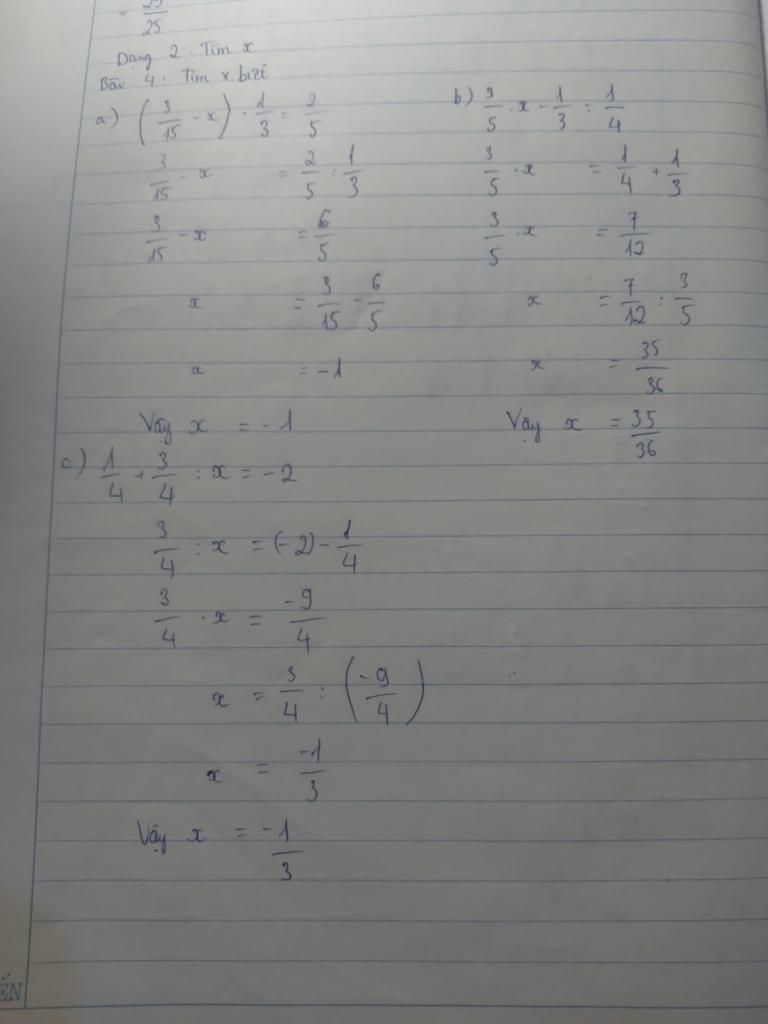 25
Dạng 2. Tìm x
Bài 4: Tìm x biết
a) (3/15 - x) . 1/3 = 2/5
3/15 - x = 2/5 : 1/3
3/15 - x = 6/5
x = 3/15 - 6/5
x = -1
Vậy x = -1
b) 3/5 . x - 1/3 = 1/4
3/5 . x = 1/4 + 1/3
3/5 . x = 7/12
x = 7/12 : 3/5
x = 35/36
Vậy x = 35/36
c) 1/4 + 3/4 : x = -2
3/4 : x = (-2) - 1/4
3/4 : x = -9/4
x = 3/4 : (-9/4)
x = -1/3
Vậy x = -1/3
ẾN